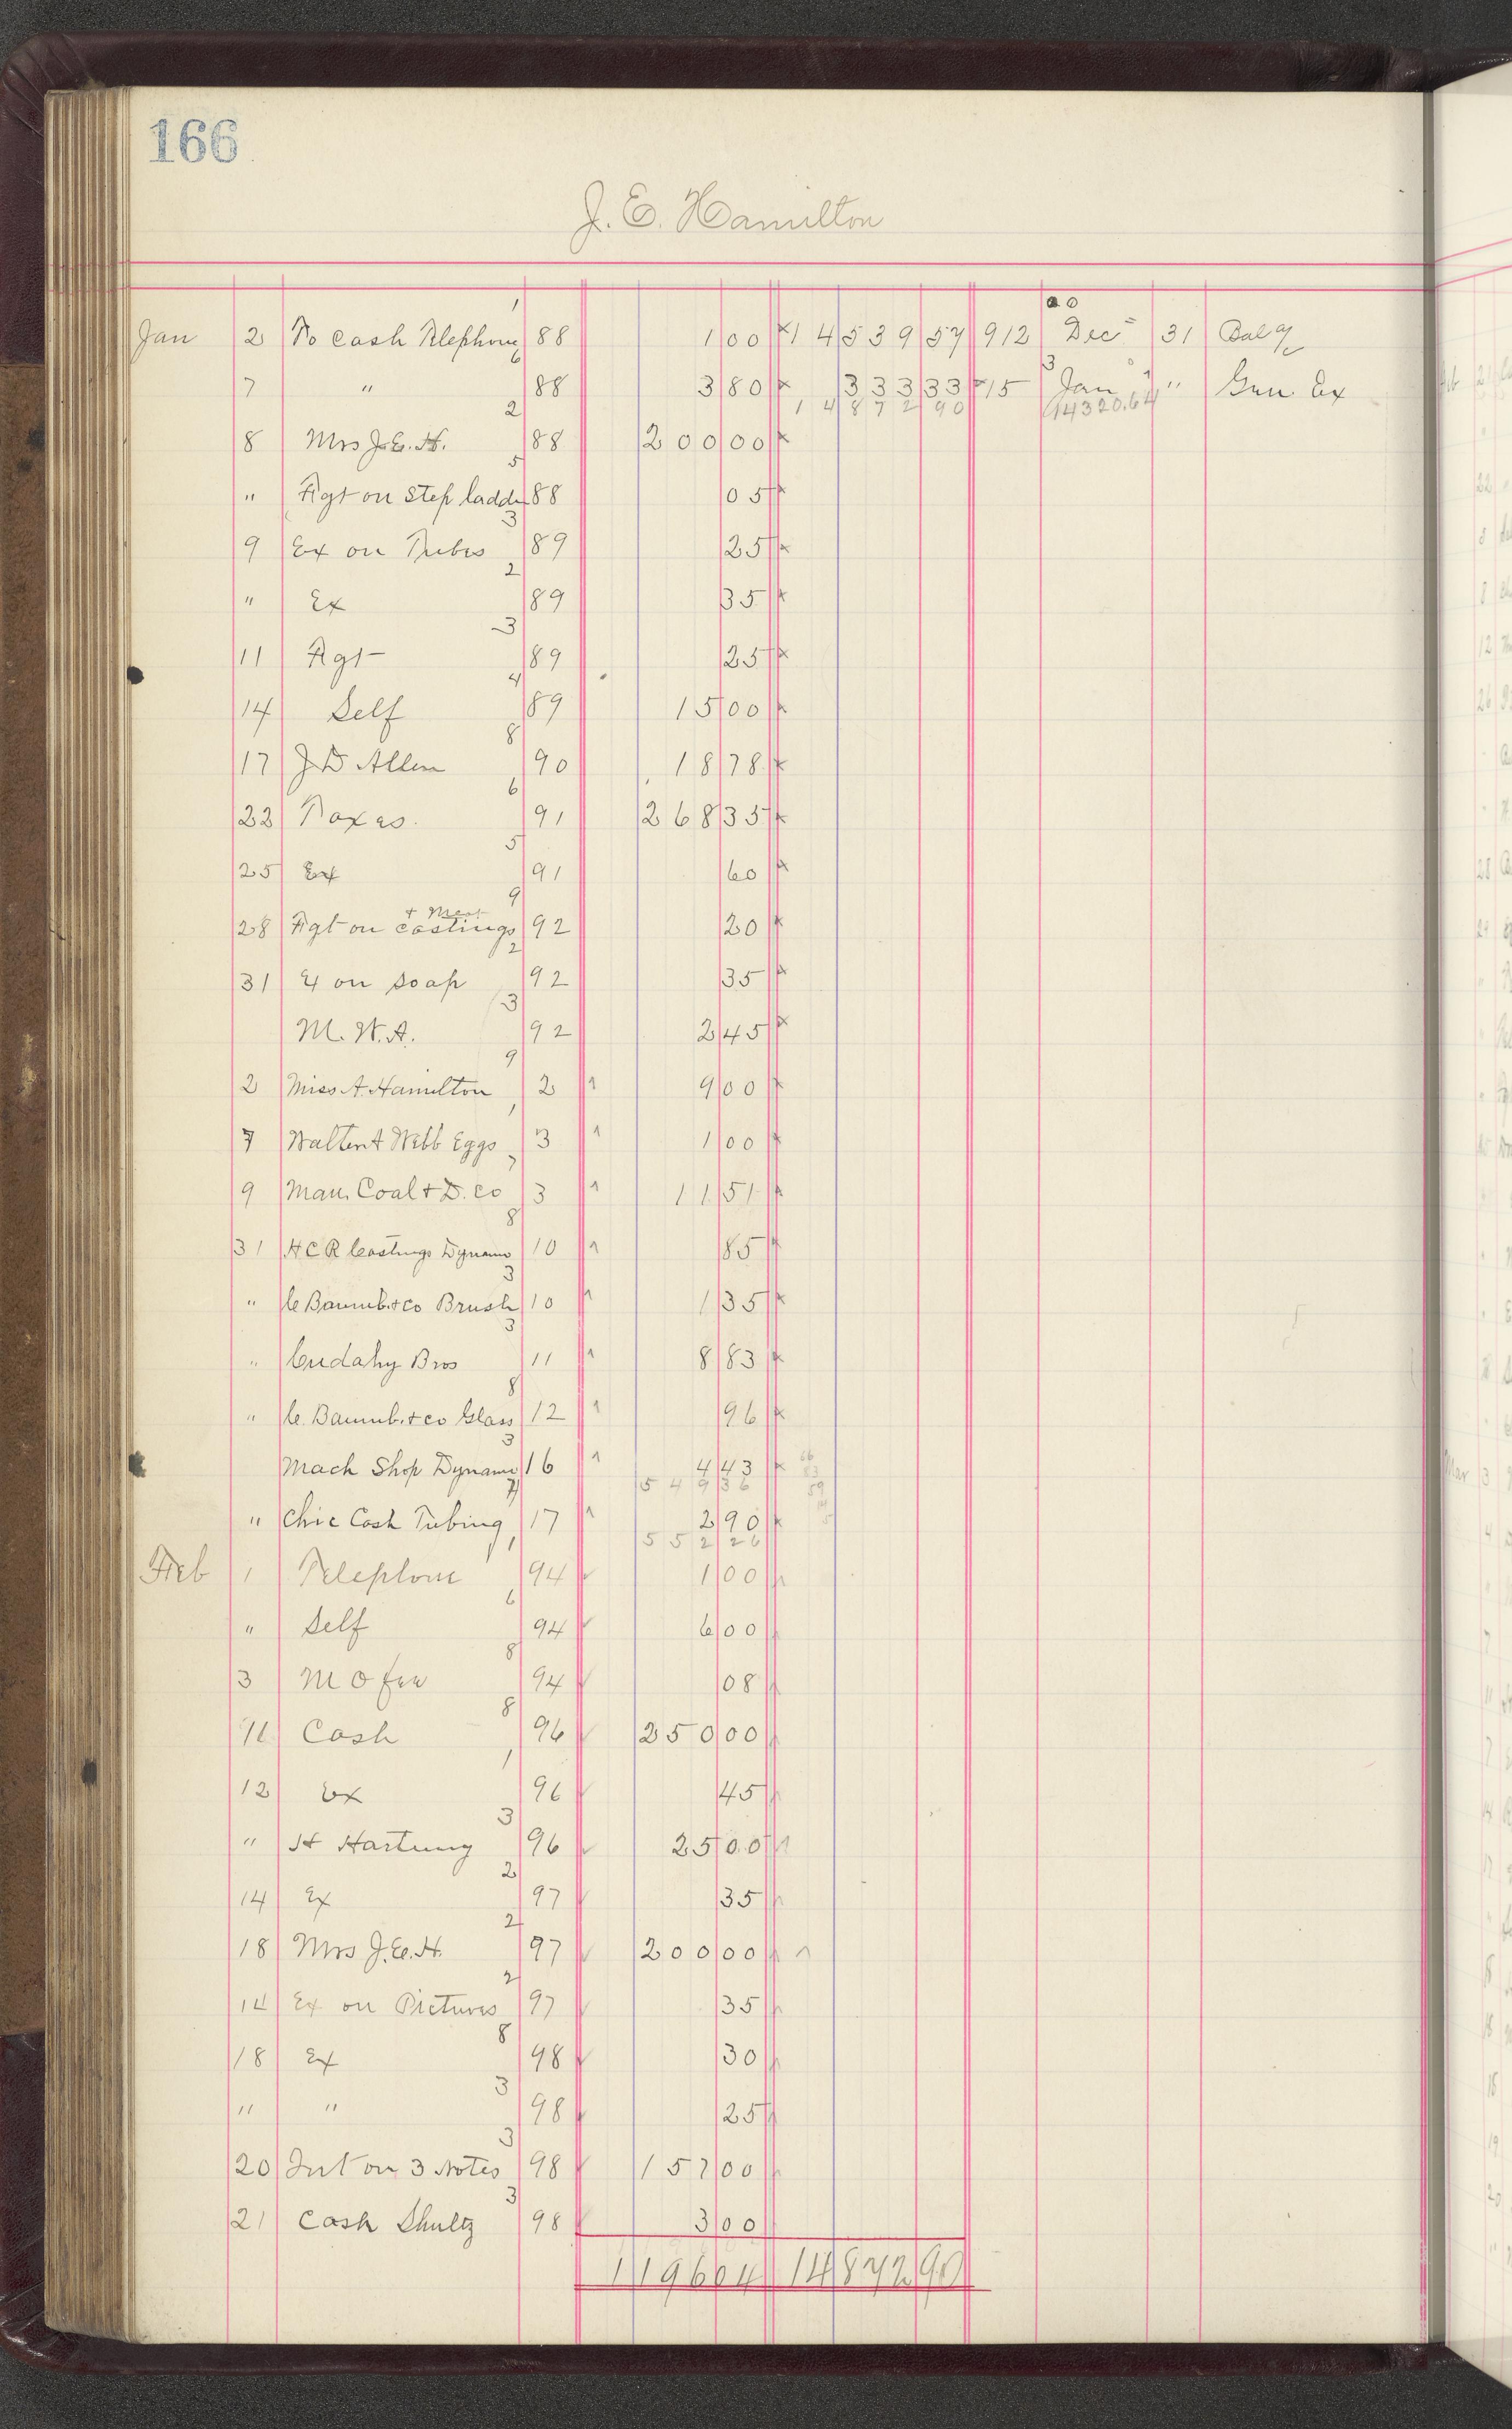 166
J. E. Hamilton
Jan 2 To Cash Telephone 88 1 00 14539 57 912 Dec 31 Bal %
7 " 88 3 80 333 33 15 Jan " Gen Ex
14872 90 14320.64
8 Mrs J.E.H. 88 200 00
" Frgt on Step ladder 88 05
9 Ex on Tubes 89 25
" Ex 89 35
11 Frgt 89 25
14 Self 89 15 00
17 J D Allen 90 18 78
22 Taxes 91 268 35
25 Ex 91 60
28 Frgt on Castings + Meat 92 20
31 Ex on Soap 92 35
M. W. A. 92 2 45
2 Miss A. Hamilton 2 9 00
7 Walter A Webb Eggs 3 1 00
9 Man. Coal & D. Co 3 11 51
31 H C R Castings Dynamo 10 85
" C Baumb. & Co Brush 10 1 35
" Cudahy Bros 11 8 83
" C. Baumb. & Co Glass 12 96
Mach Shop Dynamo 16 4 43
549 36
" Chic Cash Tubing 17 2 90
552 26
Feb 1 Telephone 94 1 00
" Self 94 6 00
3 M O fee 94 08
11 Cash 96 250 00
12 Ex 96 45
" H Hartung 96 25 00
14 Ex 97 35
18 Mrs J.E.H. 97 200 00
14 Ex on Pictures 97 35
18 Ex 98 30
" " 98 25
20 Int on 3 Notes 98 157 00
21 Cash Shultz 98 3 00
1196 04 14872 90